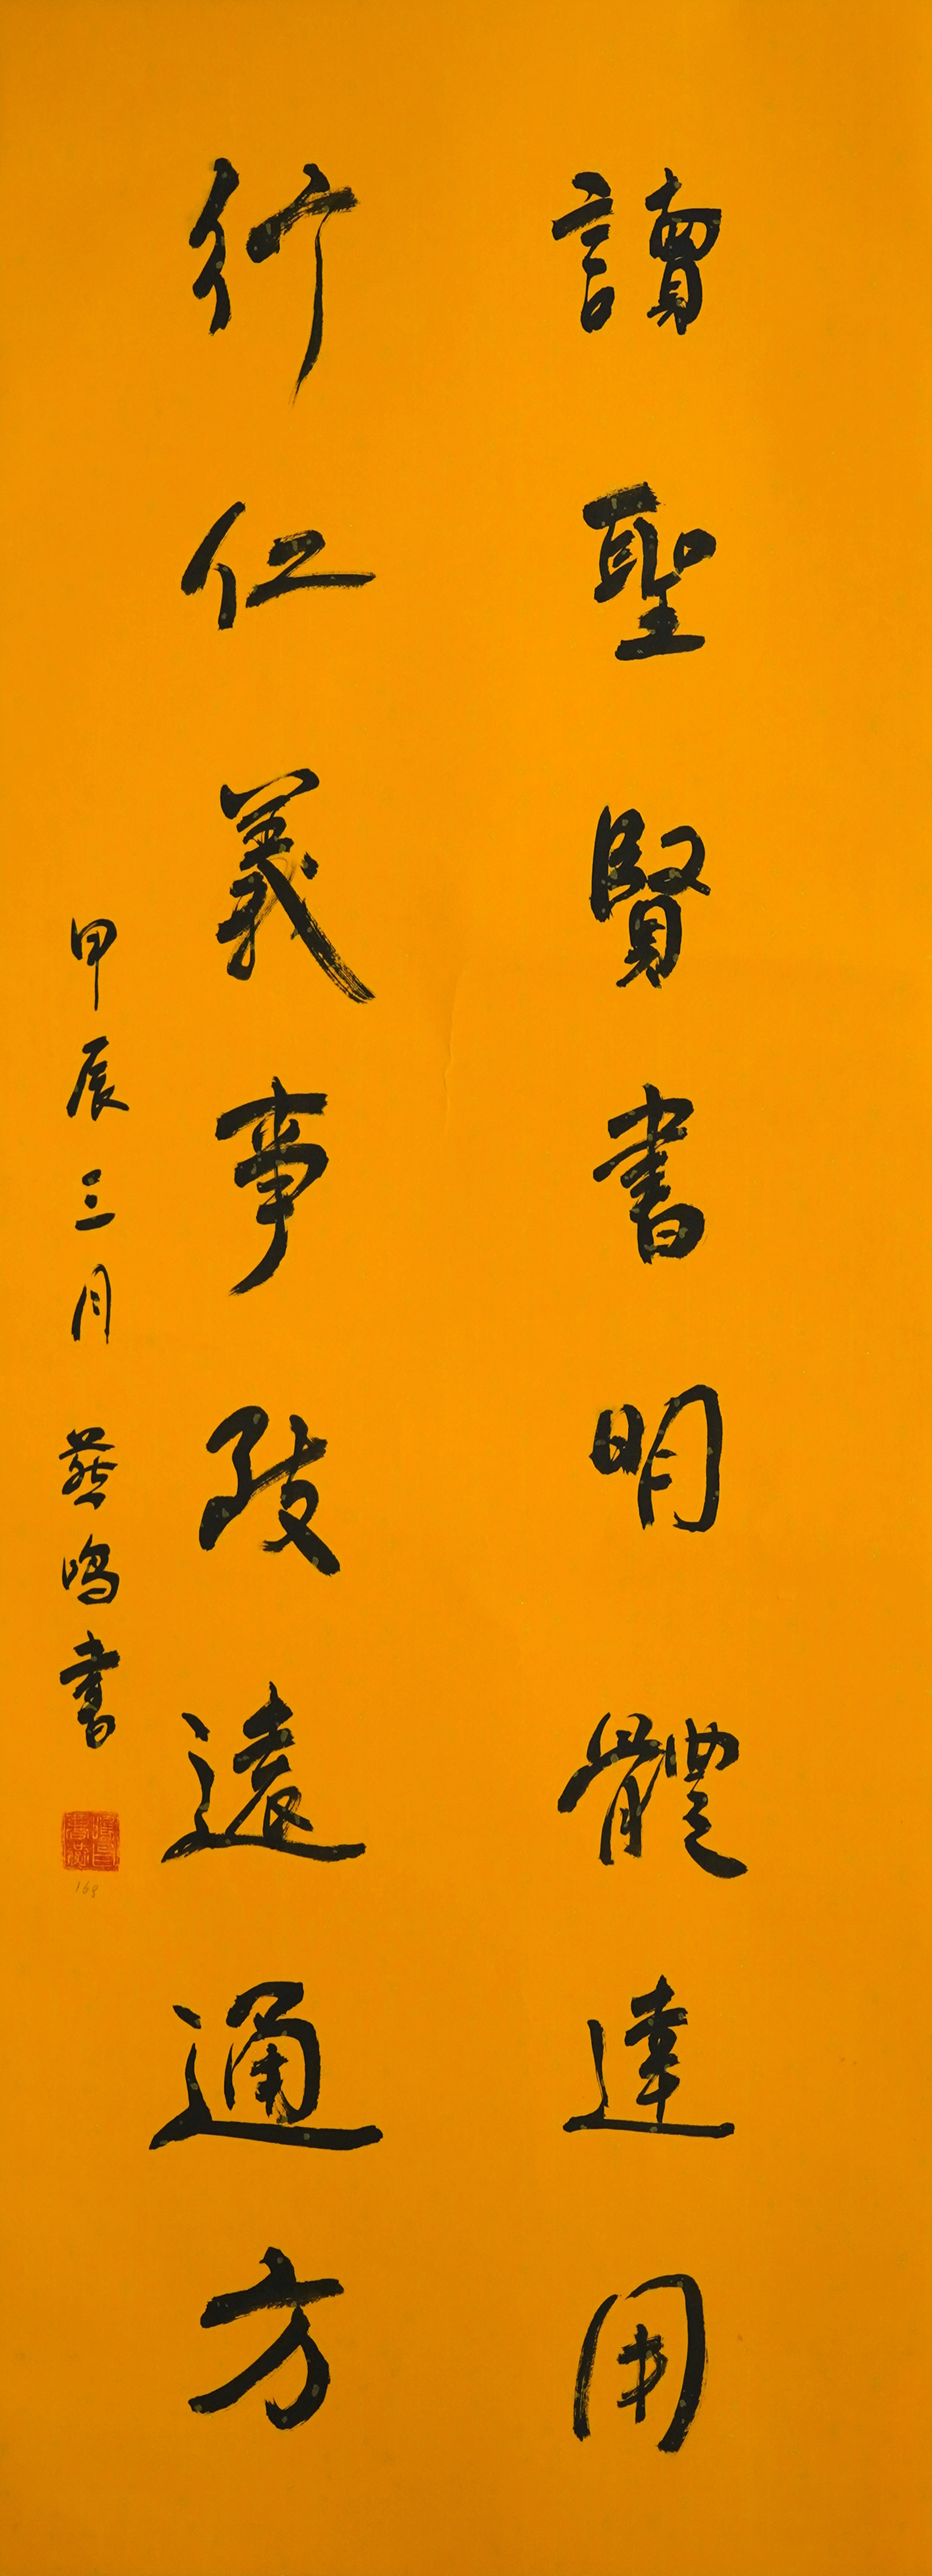 讀聖賢書明體達用
行仁義事致遠通方
甲辰三月燕鳴書
168